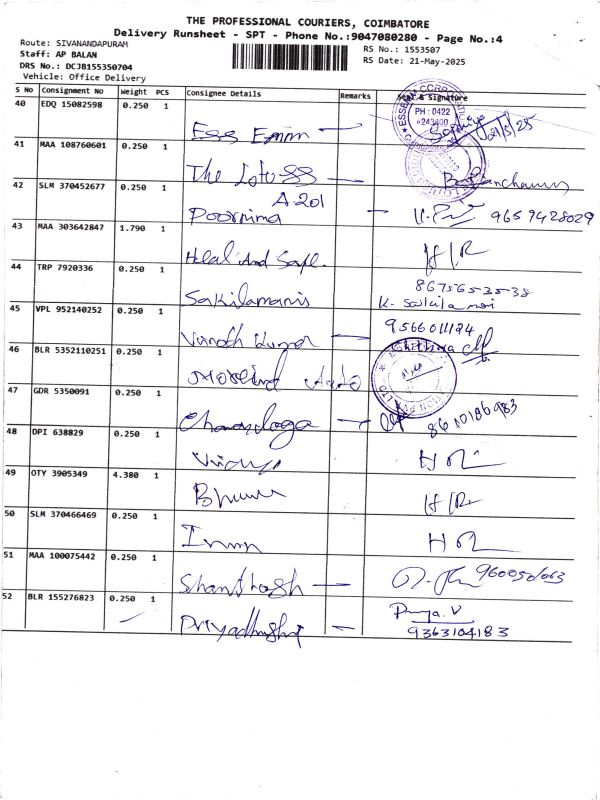 THE PROFESSIONAL COURIERS, COIMBATORE
Delivery Runsheet - SPT - Phone No.:9047080280 - Page No.:4
Route: SIVANANDAPURAM
RS No.: 1553507
Staff: AP BALAN
RS Date: 21-May-2025
DRS No.: DCJB155350704
Vehicle: Office Delivery
S No Consignment No Weight PCS Consignee Details Remarks Seal & Signature
40 EDQ 15082598 0.250 1
PH : 0422
21/5/25
41 MAA 108760601 0.250 1 The Lotus
42 SLM 370452677 0.250 1 A 201
Poornima 9659428029
43 MAA 303642847 1.790 1 Halal And Safe H/R
44 TRP 7920336 0.250 1 8675653538
Sakilamanis K. Sakila mani
45 VPL 952140252 0.250 1 9566011124
Vinoth Kumar
46 BLR 5352110251 0.250 1 Auto
47 GDR 5350091 0.250 1
48 DPI 638829 0.250 1
49 OTY 3905349 4.380 1 H/R
50 SLM 370466469 0.250 1
51 MAA 100075442 0.250 1 Shanthosh
52 BLR 155276823 0.250 1 Priya. V
9363104183